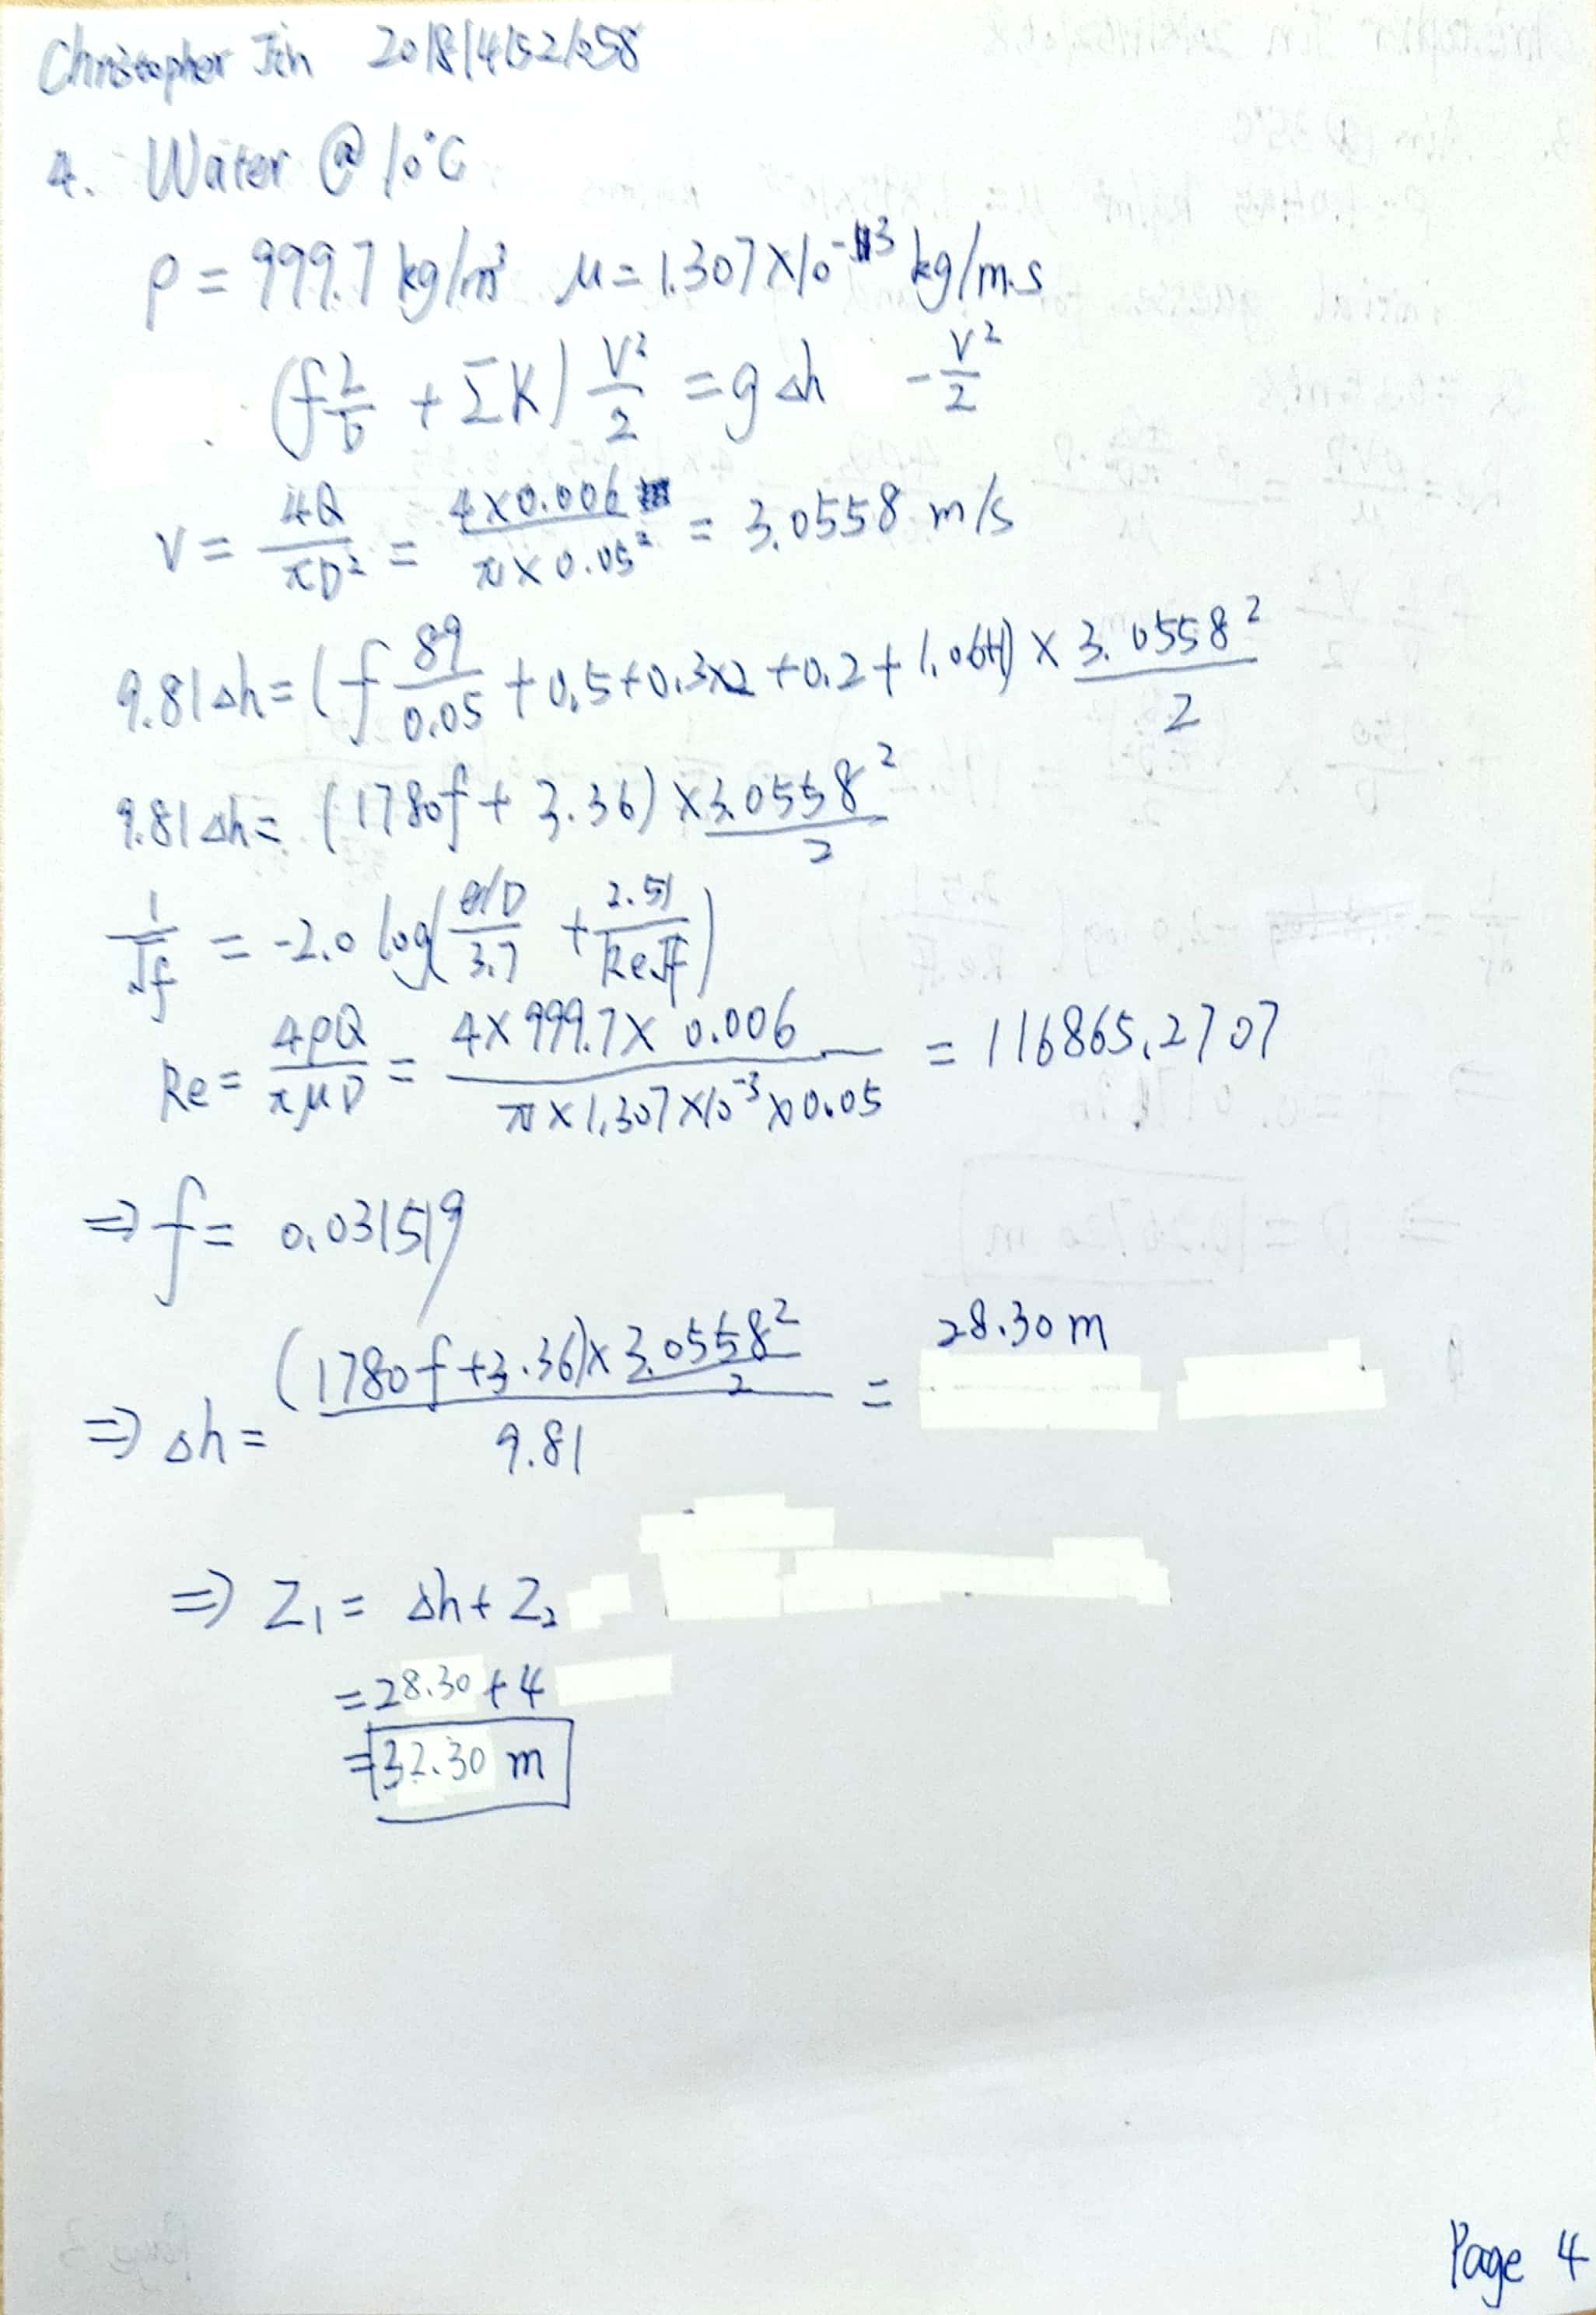 Christopher Jin 2018141521058
4. Water @ 10°C
ρ = 999.7 kg/m³ μ = 1.307 × 10⁻³ kg/m·s
(f L/D + ΣK) V²/2 = gΔh - V²/2
V = 4Q/πD² = 4×0.006/π×0.05² = 3.0558 m/s
9.81Δh = (f 89/0.05 + 0.5+0.3×2+0.2+1.06+1) × 3.0558²/2
9.81Δh = (1780f + 3.36) × 3.0558²/2
1/√f = -2.0 log(ε/D/3.7 + 2.51/Re√f)
Re = 4ρQ/πμD = 4×999.7×0.006/π×1.307×10⁻³×0.05 = 116865.2707
⇒ f = 0.031519
⇒ Δh = (1780f+3.36)×3.0558²/2/9.81 = 28.30 m
⇒ Z₁ = Δh + Z₂
= 28.30 + 4
= 32.30 m
Page 4